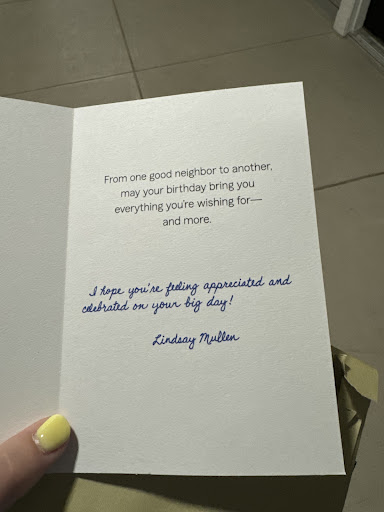 From one good neighbor to another,
may your birthday bring you
everything you're wishing for—
and more.
I hope you're feeling appreciated and
celebrated on your big day!
Lindsay Mullen